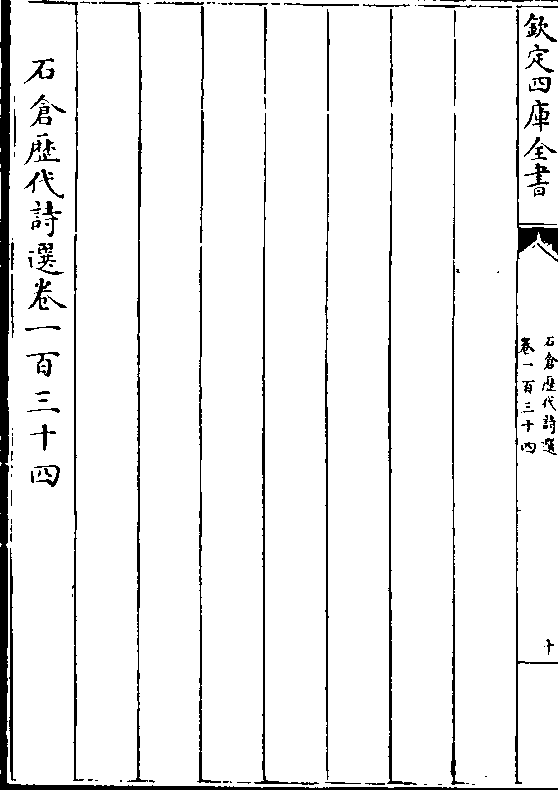 欽定四庫全書
石倉歷代詩選
卷一百三十四
十
石倉歷代詩選卷一百三十四